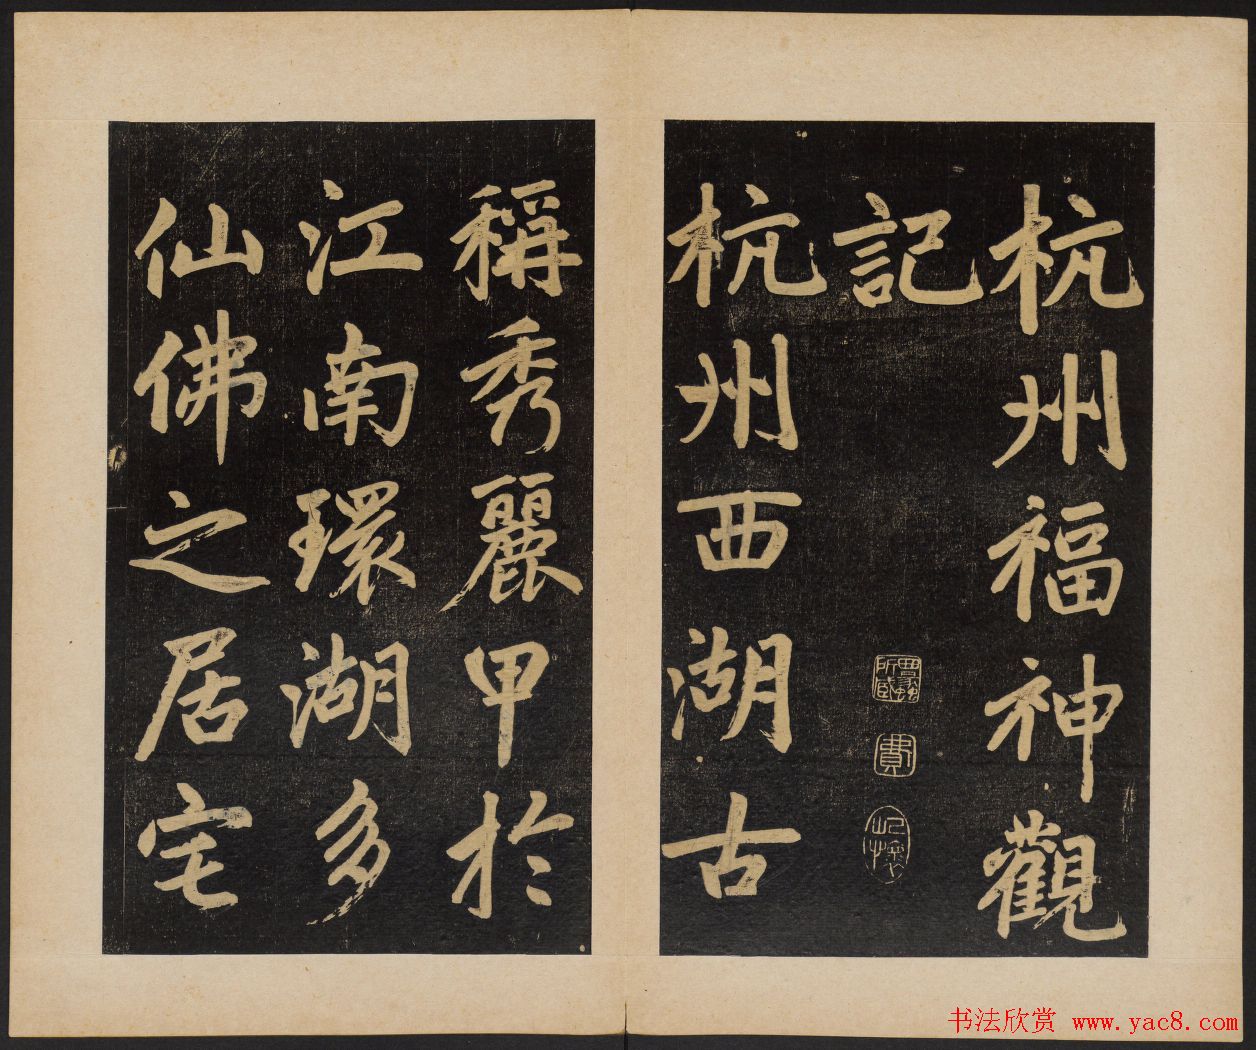 杭州福神觀
記
杭州西湖古
稱秀麗甲於
江南環湖多
仙佛之居宅
书法欣赏 www.yac8.com